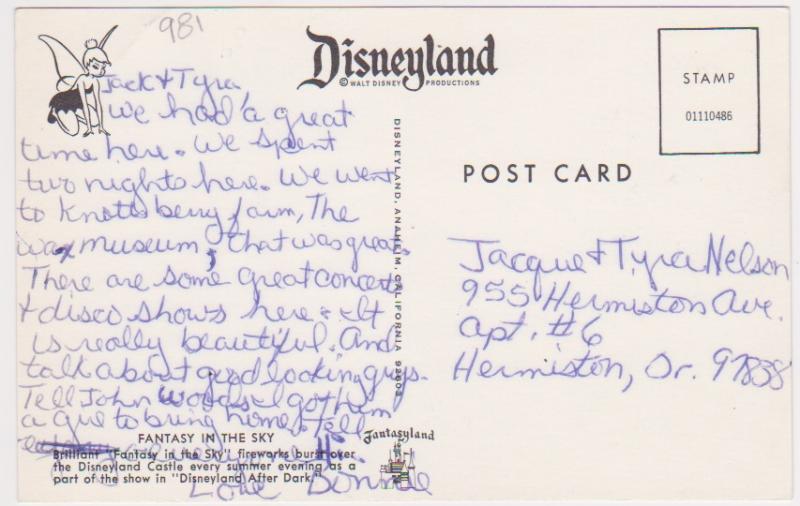 981
Disneyland
© WALT DISNEY PRODUCTIONS
STAMP
01110486
POST CARD
Jack & Tyra,
We had a great
time here. We spent
two nights here. We went
to Knotts berry farm, The
wax museum, that was great.
There are some great concerts
& disco shows here. It
is really beautiful. And
talk about good looking guys.
Tell John Woods I got him
a que to bring home. Tell
Hi.
Love Bonnie
DISNEYLAND, ANAHEIM, CALIFORNIA 92803
Jacque & Tyra Nelson
955 Hermiston Ave.
Apt. #6
Hermiston, Or. 97838
FANTASY IN THE SKY
Brilliant "Fantasy in the Sky" fireworks burst over
the Disneyland Castle every summer evening as a
part of the show in "Disneyland After Dark."
Fantasyland